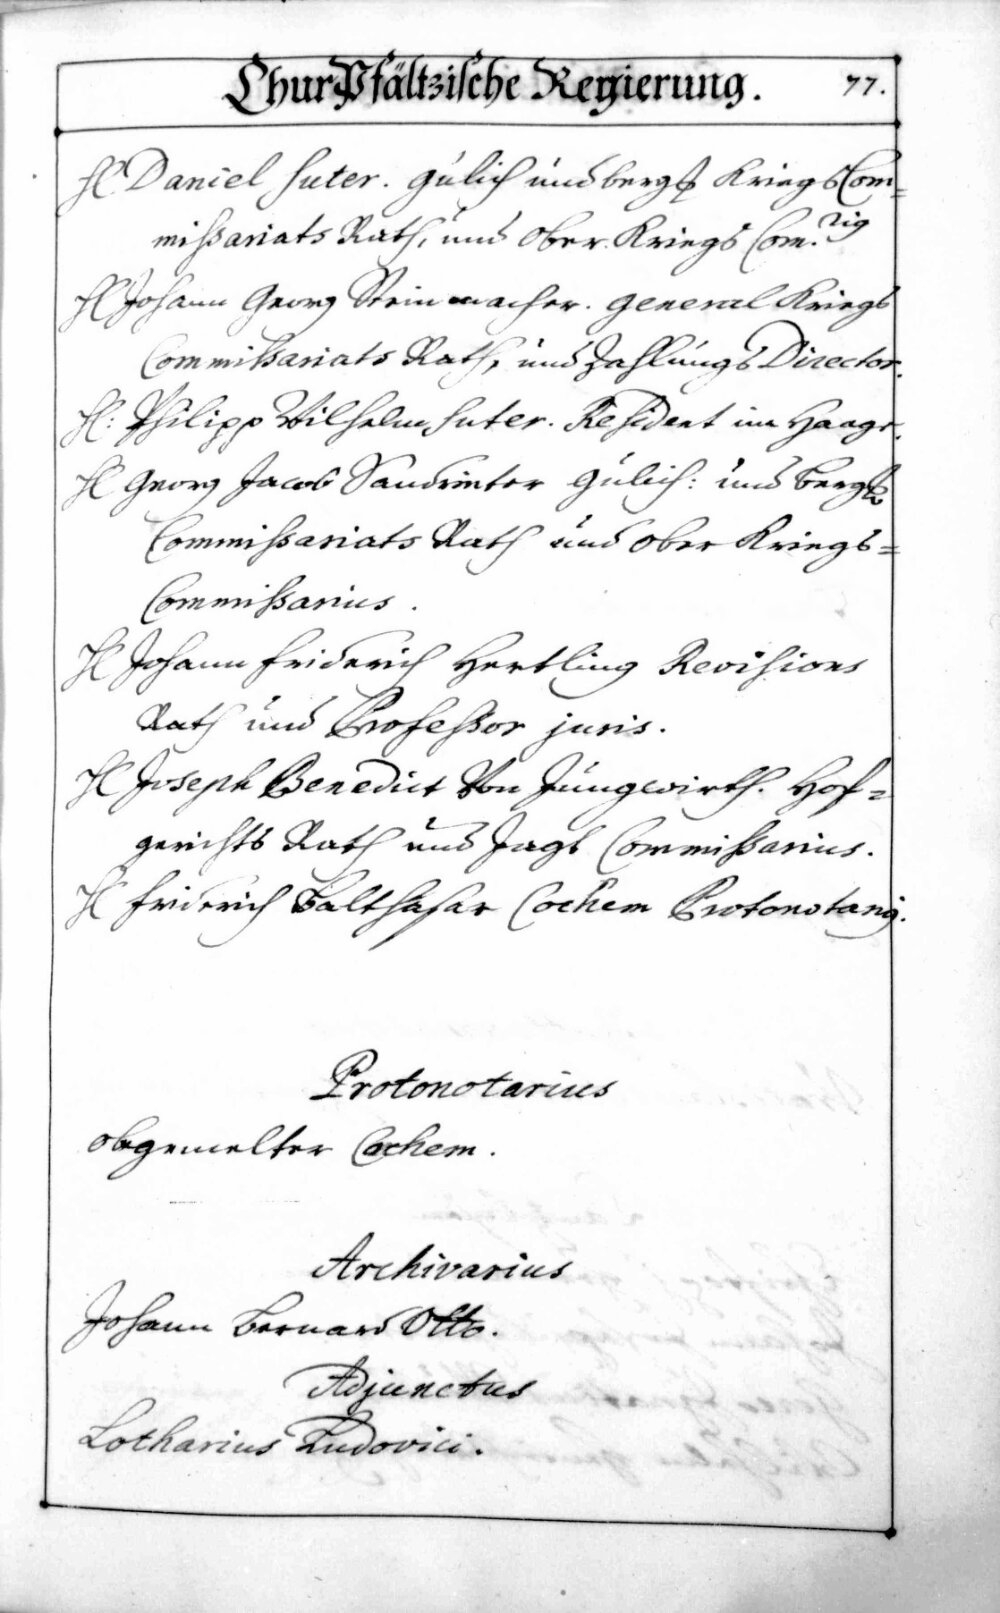 ChurPfältzische Regierung. 77.
H Daniel Suter. Gülich und bergs. KriegsCom=
missariats Rath, und Ober Kriegs Com.rig
H Johann Georg Steinmacher. General Kriegs
Commissariats Rath, und Zahlungs Director.
H: Philipp Wilhelm Suter. Resident im Haag.
H Georg Jacob Gülich: und Bergs.
Commissariats Rath und Ober Kriegs=
Commissarius.
H Johann Friderich Hertling Revisions
Rath und Professor juris.
H Joseph Benedict Von Jungwirth. Hof=
gerichts Rath und Jagt Commissarius.
H Friderich Balthasar Cochem Protonotarig.
Protonotarius
obgemelter Cochem.
Archivarius
Johann Bernard Otto.
Adjunctus
Lotharius Ludovici.